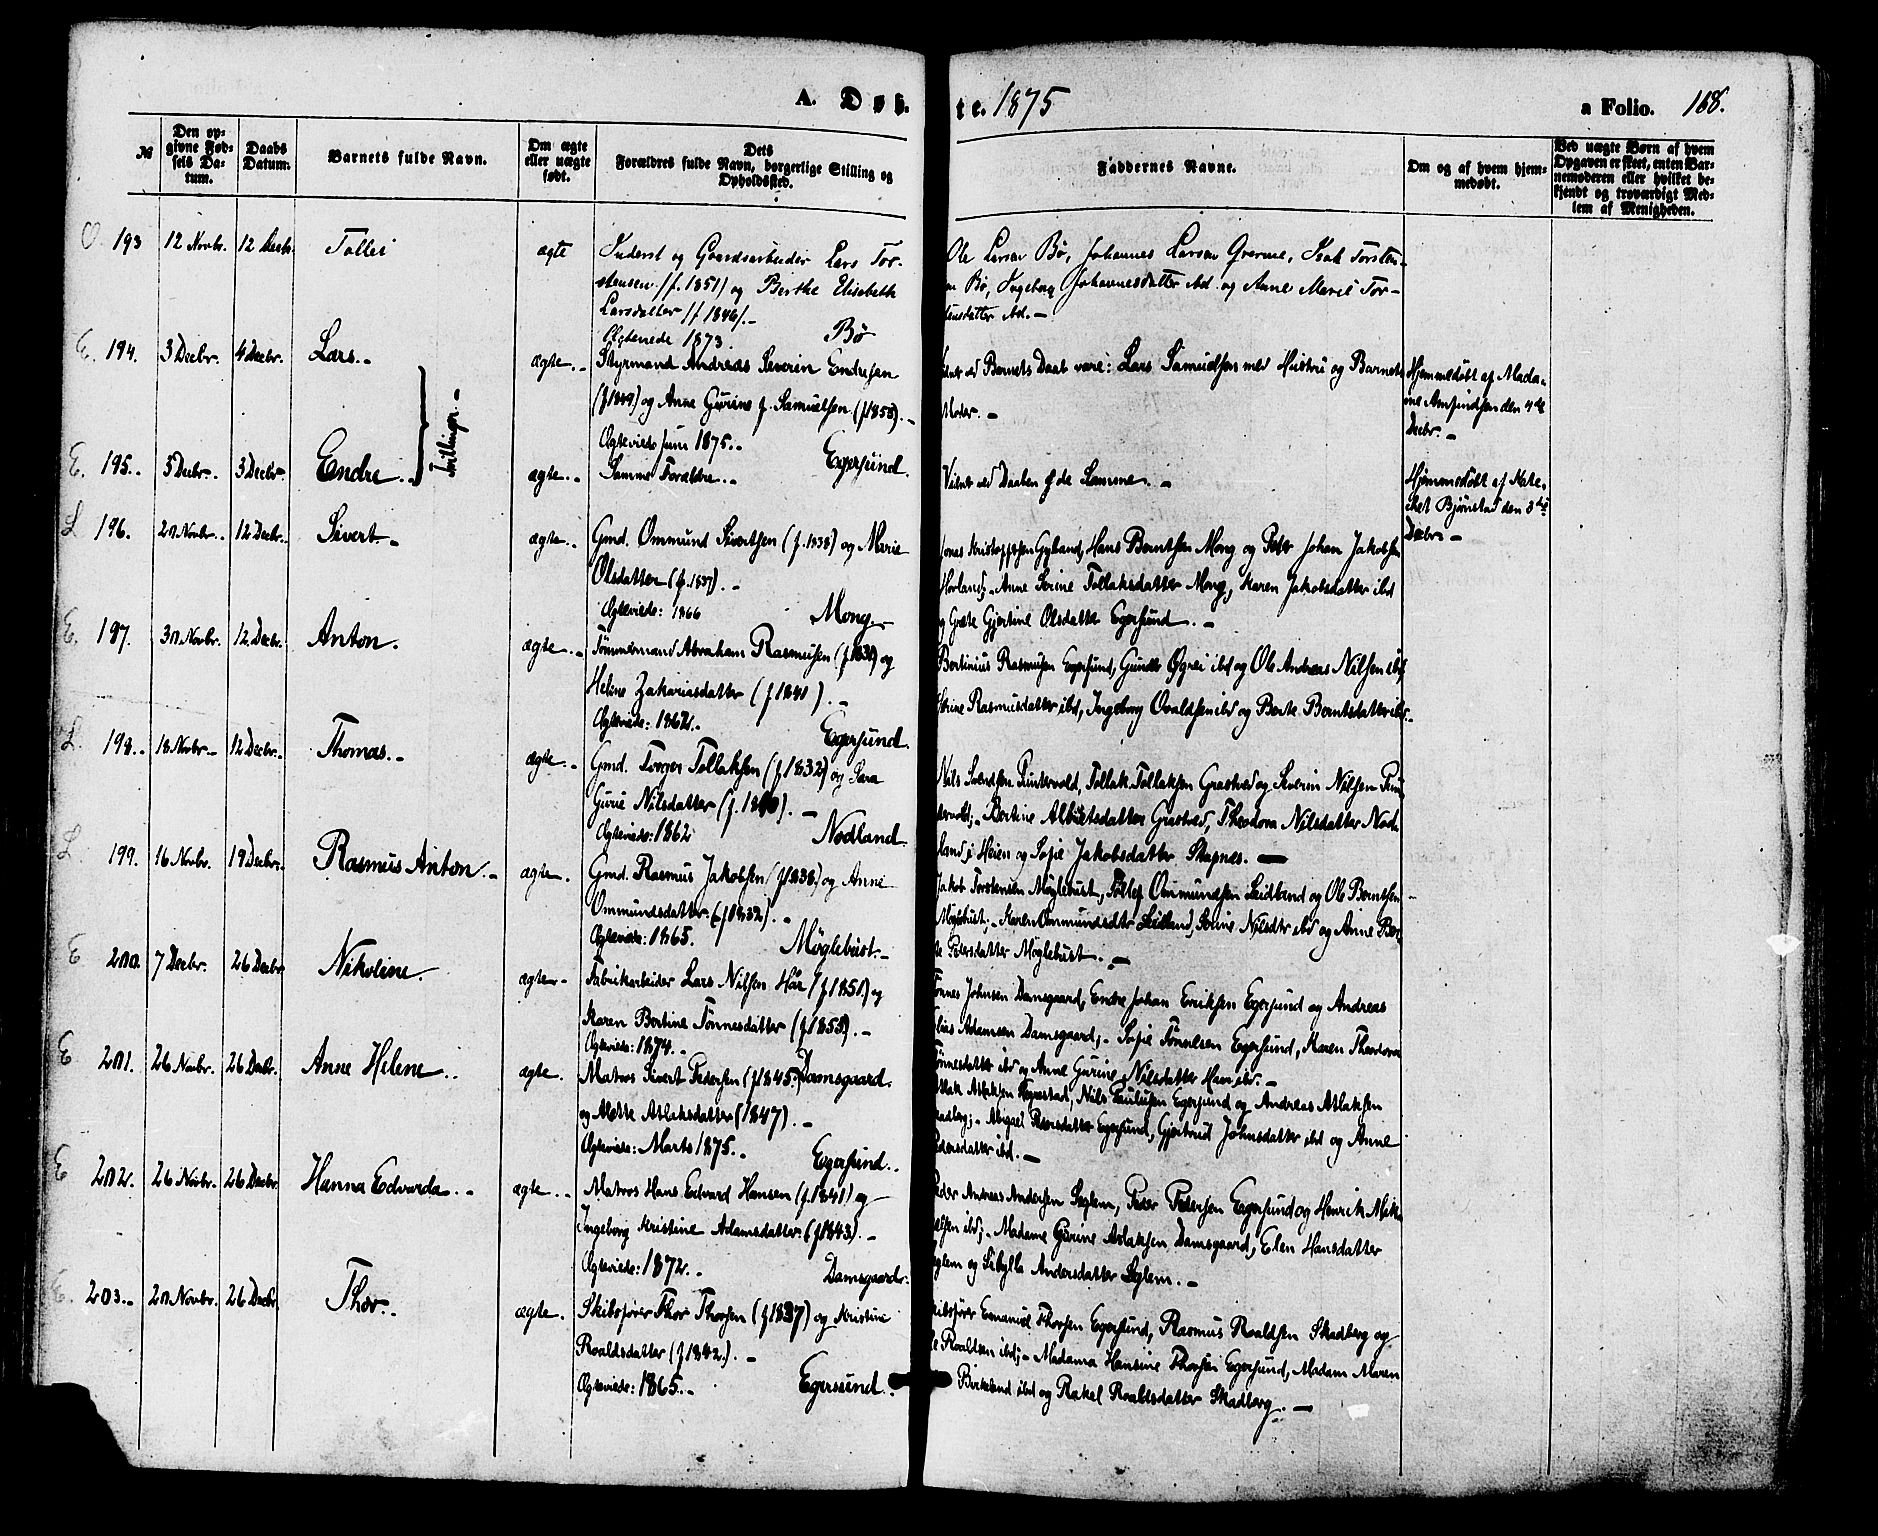 A. Døb-
te. 1875
a Folio. 168.
№
Den op-
givne Fød-
sels Da-
tum.
Daabs
Datum.
Barnets fulde Navn.
Om ægte
eller uægte
født.
Dets
Forældres fulde Navn, borgerlige Stilling og
Opholdssted.
Faddernes Navne.
Om og af hvem hjem-
medøbt.
Ved uægte Børn af hvem
Opgaven er skeet, enten Bar-
nemoderen eller hvilket be-
kjendt og troværdigt Med-
lem af Menigheden.
O. 193 12 Novbr. 12 Decbr. Tollei ægte Inderst og Gaardsarbeider Lars Tor-
stensen (f. 1851) og Berthe Elisabeth
Larsdatter (f 1846).-
Ægteviede 1873. Bø
Ole Larsen Bø, Johannes Larsen, Isak Torsten-
en Bø, Ingeborg Johannesdatter ibd og Anne Marie Tor-
stensdatter ibd.-
E. 194. 3 Decbr. 4 Decbr. Lars.- ægte.- Styrmand Andreas Severin Endresen
(f 1849) og Anne Gurine f. Samuelsen (f 1853).-
Ægteviede Juni 1875.- Egersund.
ved Barnets Daab vare: Lars Samuelsen med Hustru og Barnets
Moder.-
Hjemmedøbt af Mada-
me Amundsen den 4de
Decbr.-
Tvillinger.-
E. 195.. 3 Decbr.. 3 Decbr. Endre.. ægte.- Samme Forældre.-
Vidner ved Daaben de Samme.-
Hjemmedøbt af Kate-
ket Bjørnstad den 3die
Decbr.-
L 196. 20 Novbr.. 12 Decbr.. Sivert.- ægte.. Gmd. Ommund Sivertsen (f. 1838) og Marie
Olsdatter (f. 1837).-
Ægteviede: 1866 Mong.-
Jonas Kristoffersen Gyland, Hans Berntsen Mong og Peder Johan Jakobsen
Hovland;- Anne Serine Tollaksdatter Mong, Karen Jakobsdatter ibd
og Grete Gjertine Olsdatter Egersund.-
E. 197. 30 Novbr. 12 Decbr. Anton. ægte.- Tømmermand Abraham Rasmussen (f 1830) og
Helene Zakariasdatter (f 1841).-
Ægteviede: 1862.- Egersund.
Bertinius Rasmussen Egersund, Gunder ibd og Ole Andreas Nilsen ibd,
Rasmusdatter ibd, Ingeborg Ovaldsen ibd og Berte Berntsdatter ibd.
L. 198.. 18 Novbr.- 12 Decbr.. Thomas.- ægte.- Gmd. Torger Tollaksen (f 1832) og Sara
Gurie Nilsdatter (f. 1840).-
Ægteviede: 1862 Nodland.
Nils Svendsen, Tollak Tollaksen Grastved og Severin Nilsen
;- Bertine Albretsdatter Grastved, Theodora Nilsdatter Nod-
land i Heien og Sofie Jakobsdatter Skapnes.-
L. 199. 16 Novbr. 19 Decbr. Rasmus Anton.- ægte. Gmd. Rasmus Jakobsen (f 1838) og Anne
Ommundsdatter (f 1832).-
Ægteviede: 1865. Møglebust.-
Jakob Torstensen Møglebust, Tollef Ommundsen Leidland og Ole Berntsen
Møglebust;- Karen Ommundsdtr Leidland, Serine Nilsdtr ibd og Anne Ber-
te Pedersdatter Møglebust.-
E 200. 7 Decbr. 26 Decbr Nikoline. ægte.- Fabrikarbeider Lars Nilsen (f 1851) og
Karen Bertine Tønnesdatter (f 1853).-
Ægteviede: 1874.- Damsgaard.
Tønnes Johnsen Damsgaard, Endre Johan Eriksen Egersund og Andreas
Elias Adamsen Damsgaard;- Sofie Tønnesen Egersund, Karen Theodora
Tønnesdatter ibd og Anne Gurine Nilsdatter ibd.-
E 201. 26 Novbr. 26 Decbr. Anne Helene.. ægte. Matros Sivert Pedersen (f 1845)
og Mette Atlaksdatter (1847).-
Ægteviede: Marts 1875.- Egersund..
Atlak Atlaksen, Nils Paulsen Egersund og Andreas Atlaksen
Skadberg;- Abigael Pedersdatter Egersund, Gjertrud Johnsdatter ibd og Anne
Pedersdatter ibd.-
E 202. 26 Novbr. 26 Decbr. Hanna Edvarda.- ægte.- Matros Hans Edvard Hansen (f. 1841) og
Ingeborg Kristine Adamsdatter (f 1843).-
Ægteviede: 1872.- Damsgaard.
Peder Andreas Andersen Seglem, Peder Pedersen Egersund og Henrik Mik-
kelsen ibd;- Madame Gurine Atlaksen Damsgaard, Elen Hansdatter
Seglem og Sibylla Andersdatter Seglem.-
E. 203.- 20 Novbr. 26 Decbr. Thor.- ægte. Skibsfører Thor Thorsen (f 1837) og Kristine
Roaldsdatter (f 1842).-
Ægteviede: 1865.- Egersund.
Skibsfører Emanuel Thorsen Egersund, Rasmus Roaldsen Skadberg og
Roaldsen ibd;- Madame Hansine Thorsen Egersund, Madam Maren
Birkeland ibd og Rakel Roaldsdatter Skadberg.-